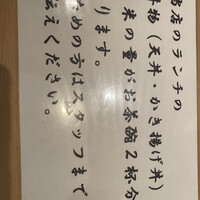 当店のランチの
丼物（天丼・かき揚げ丼）
米の量がお茶碗2杯分
ります。
めの方はスタッフまで
伝えください。